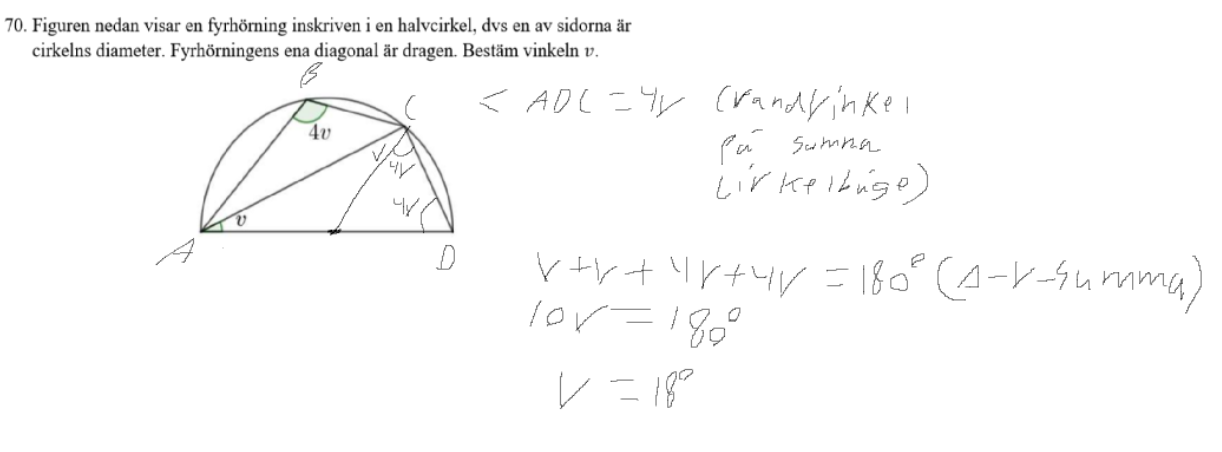 70. Figuren nedan visar en fyrhörning inskriven i en halvcirkel, dvs en av sidorna är
cirkelns diameter. Fyrhörningens ena diagonal är dragen. Bestäm vinkeln v.
B
C
4v
v
4v
4v
v
A
D
< ADC = 4v (randvinkel
på samma
cirkelbåge)
v + v + 4v + 4v = 180° (Δ-v-summa)
10v = 180°
v = 18°